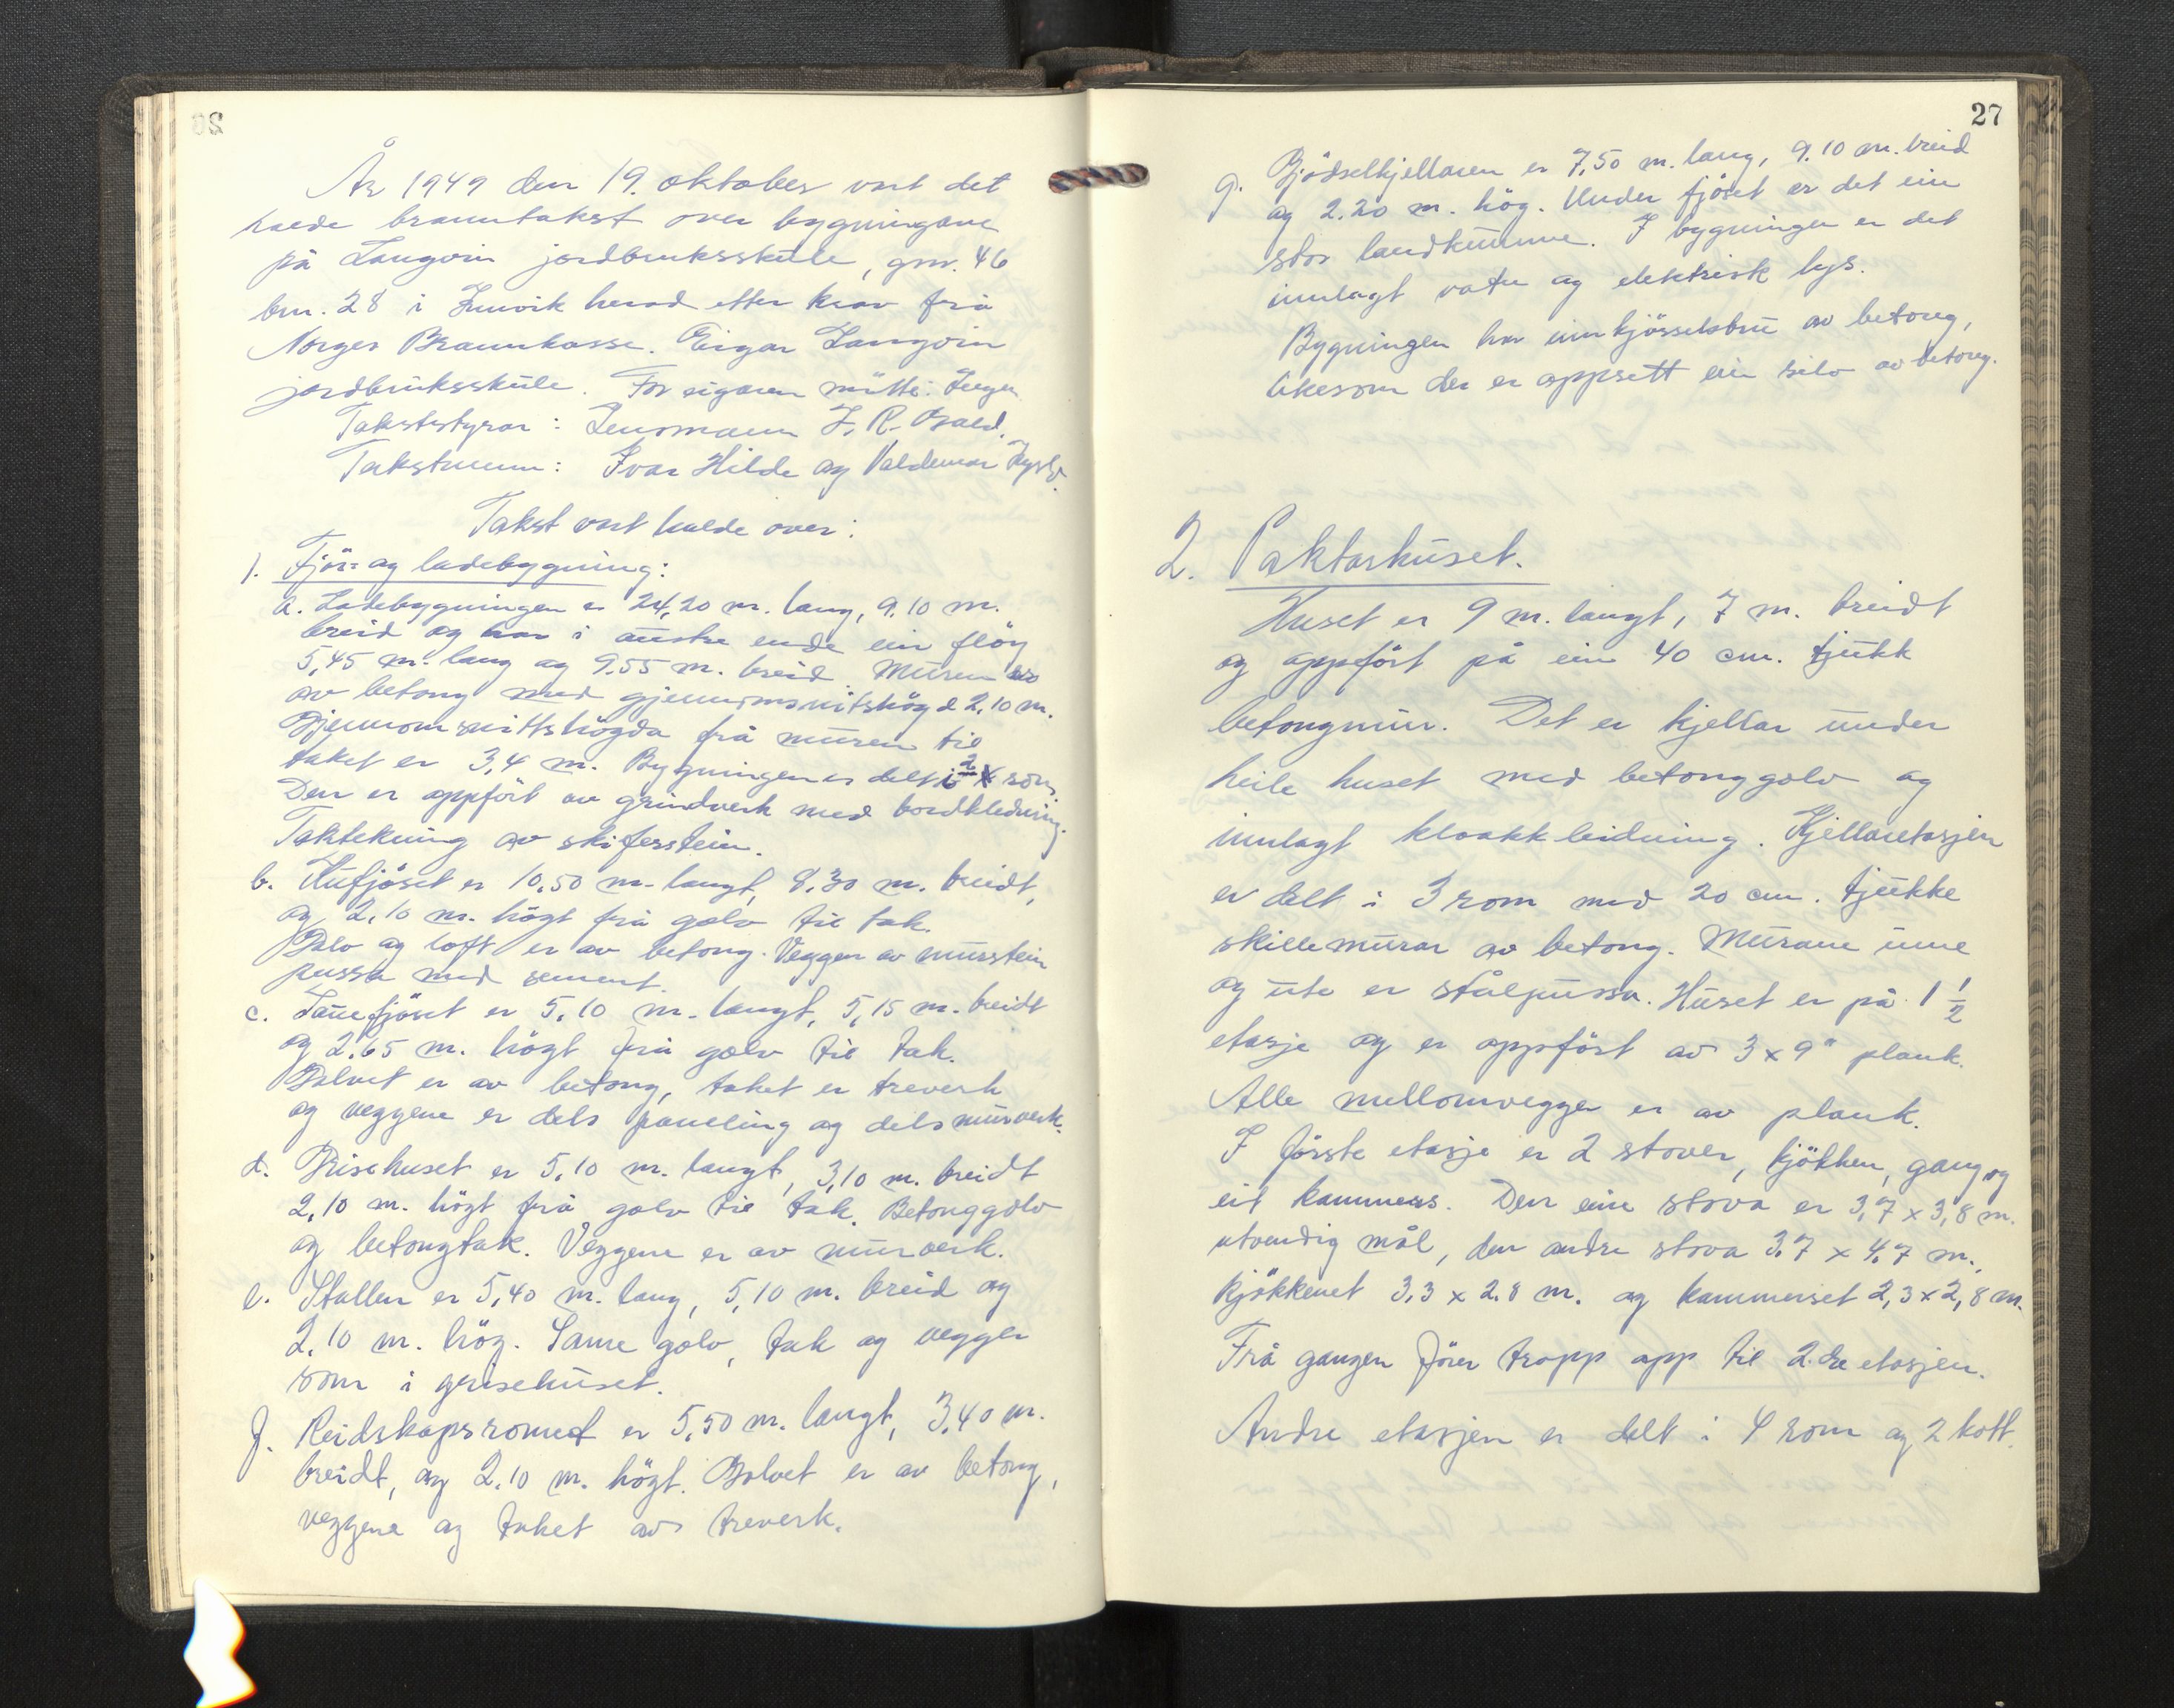 År 1949 den 19. oktober vart det
halde branntakst over bygningane
på Langvin jordbruksskule, gnr. 46
bnr. 28 i Innvik herad etter krav frå
Norges Brannkasse. Eigar Langvin
jordbruksskule. For eigaren møtte: Ingen
Takststyrar: Lensmann J. R. Osald.
Takstmenn: Ivar Hilde og Valdemar
Takst vart halde over:
1. Fjös- og ladebygning:
a. Ladebygningen er 24,20 m. lang, 9.10 m.
breid og har i austre ende ein flöy
5,45 m. lang og 9,55 m. breid. Muren er
av betong med gjennomsnitshögd 2,10 m.
Gjennomsnittshögda frå muren til
taket er 3,4 m. Bygningen er delt i 2 rom.
Den er oppfört av grindverk med bordkledning.
Taktekning av skiferstein.
b. Kufjöset er 10,50 m. langt, 8,30 m. breidt,
og 2,10 m. högt frå golv til tak.
Golv og loft er av betong. Veggen av murstein
pussa med sement.
c. Sauefjöset er 5,10 m. langt, 5,15 m. breidt
og 2.65 m. högt frå golv til tak.
Golvet er av betong, taket er treverk
og veggene er dels paneling og dels murverk.
d. Grisehuset er 5,10 m. langt, 3,10 m. breidt
2,10 m. högt frå golv til tak. Betonggolv
og betongtak. Veggene er av murverk.
e. Stallen er 5,40 m. lang, 5,10 m. breid og
2.10 m. hög. Same golv, tak og vegger
som i grisehuset.
f. Reidskapsromet er 5,50 m. langt, 3,40 m.
breidt, og 2.10 m. högt. Golvet er av betong,
veggene og taket av treverk.
27
g. Gjödselkjellaren er 7,50 m. lang, 9.10 m. breid
og 2.20 m. hög. Under fjöset er det ein
stor landkumme. I bygningen er det
innlagt vatn og elektrisk lys.
Bygningen har innkjösselsbru av betong,
likesom der er oppsett ein silo av betong.
2. Paktarhuset.
Huset er 9 m. langt, 7 m. breidt
og oppfört på ein 40 cm. tjukk
betongmur. Det er kjellar under
heile huset med betonggolv og
innlagt kloakkleidning. Kjellaretasjen
er delt i 3 rom med 20 cm. tjukke
skillemurar av betong. Murane inne
og ute er stålpussa. Huset er på 1 1/2
etasje og er oppfört av 3 x 9" plank.
Alle mellomvegger er av plank.
I förste etasje er 2 stover, kjökken, gang og
eit kammers. Den eine stova er 3,7 x 3,8 m.
utvendig mål, den andre stova 3,7 x 4,7 m.,
kjökkenet 3,3 x 2.8 m. og kammerset 2,3 x 2,8 m.
Frå gangen förer tropp opp til 2.dre etasjen.
Andre etasjen er delt i 4 rom og 2 kott.